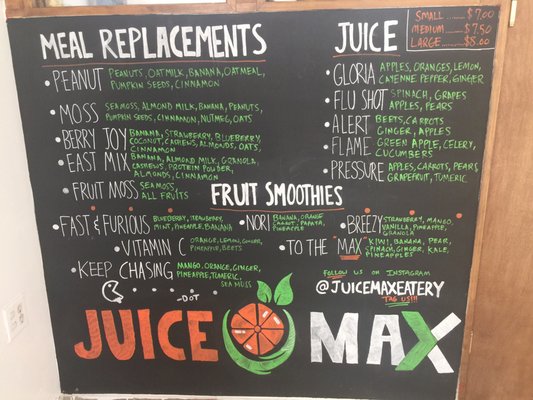 MEAL REPLACEMENTS
PEANUT PEANUTS, OATMILK, BANANA, OATMEAL,
PUMPKIN SEEDS, CINNAMON
MOSS SEAMOSS, ALMOND MILK, BANANA, PEANUTS,
PUMPKIN SEEDS, CINNAMON, NUTMEG, OATS
BERRY JOY BANANA, STRAWBERRY, BLUEBERRY,
COCONUT, CASHEWS, ALMONDS, OATS,
CINNAMON
EAST MIX BANANA, ALMOND MILK, GRANOLA,
CASHEWS, PROTEIN POWDER,
ALMONDS, CINNAMON
FRUIT MOSS SEAMOSS,
ALL FRUITS
JUICE
SMALL ........ $7.00
MEDIUM ........ $7.50
LARGE ........ $8.00
GLORIA APPLES, ORANGES, LEMON,
CAYENNE PEPPER, GINGER
FLU SHOT SPINACH, GRAPES
APPLES, PEARS
ALERT BEETS, CARROTS
GINGER, APPLES
FLAME GREEN APPLE, CELERY,
CUCUMBERS
PRESSURE APPLES, CARROTS, PEARS,
GRAPEFRUIT, TUMERIC
FRUIT SMOOTHIES
FAST & FURIOUS BLUEBERRY, STRAWBERRY,
MINT, PINEAPPLE, BANANA
NORI BANANA, ORANGE
CARROT, PAPAYA,
PINEAPPLE
BREEZY STRAWBERRY, MANGO,
VANILLA, PINEAPPLE,
GRANOLA
VITAMIN C ORANGE, LEMON, GINGER,
PINEAPPLE, BEETS
TO THE MAX KIWI, BANANA, PEAR,
SPINACH, GINGER, KALE,
PINEAPPLES
KEEP CHASING MANGO, ORANGE, GINGER,
PINEAPPLE, TUMERIC,
SEA MOSS
-DOT
FOLLOW US ON INSTAGRAM
@JUICEMAXEATERY
TAG US!!!
JUICE MAX